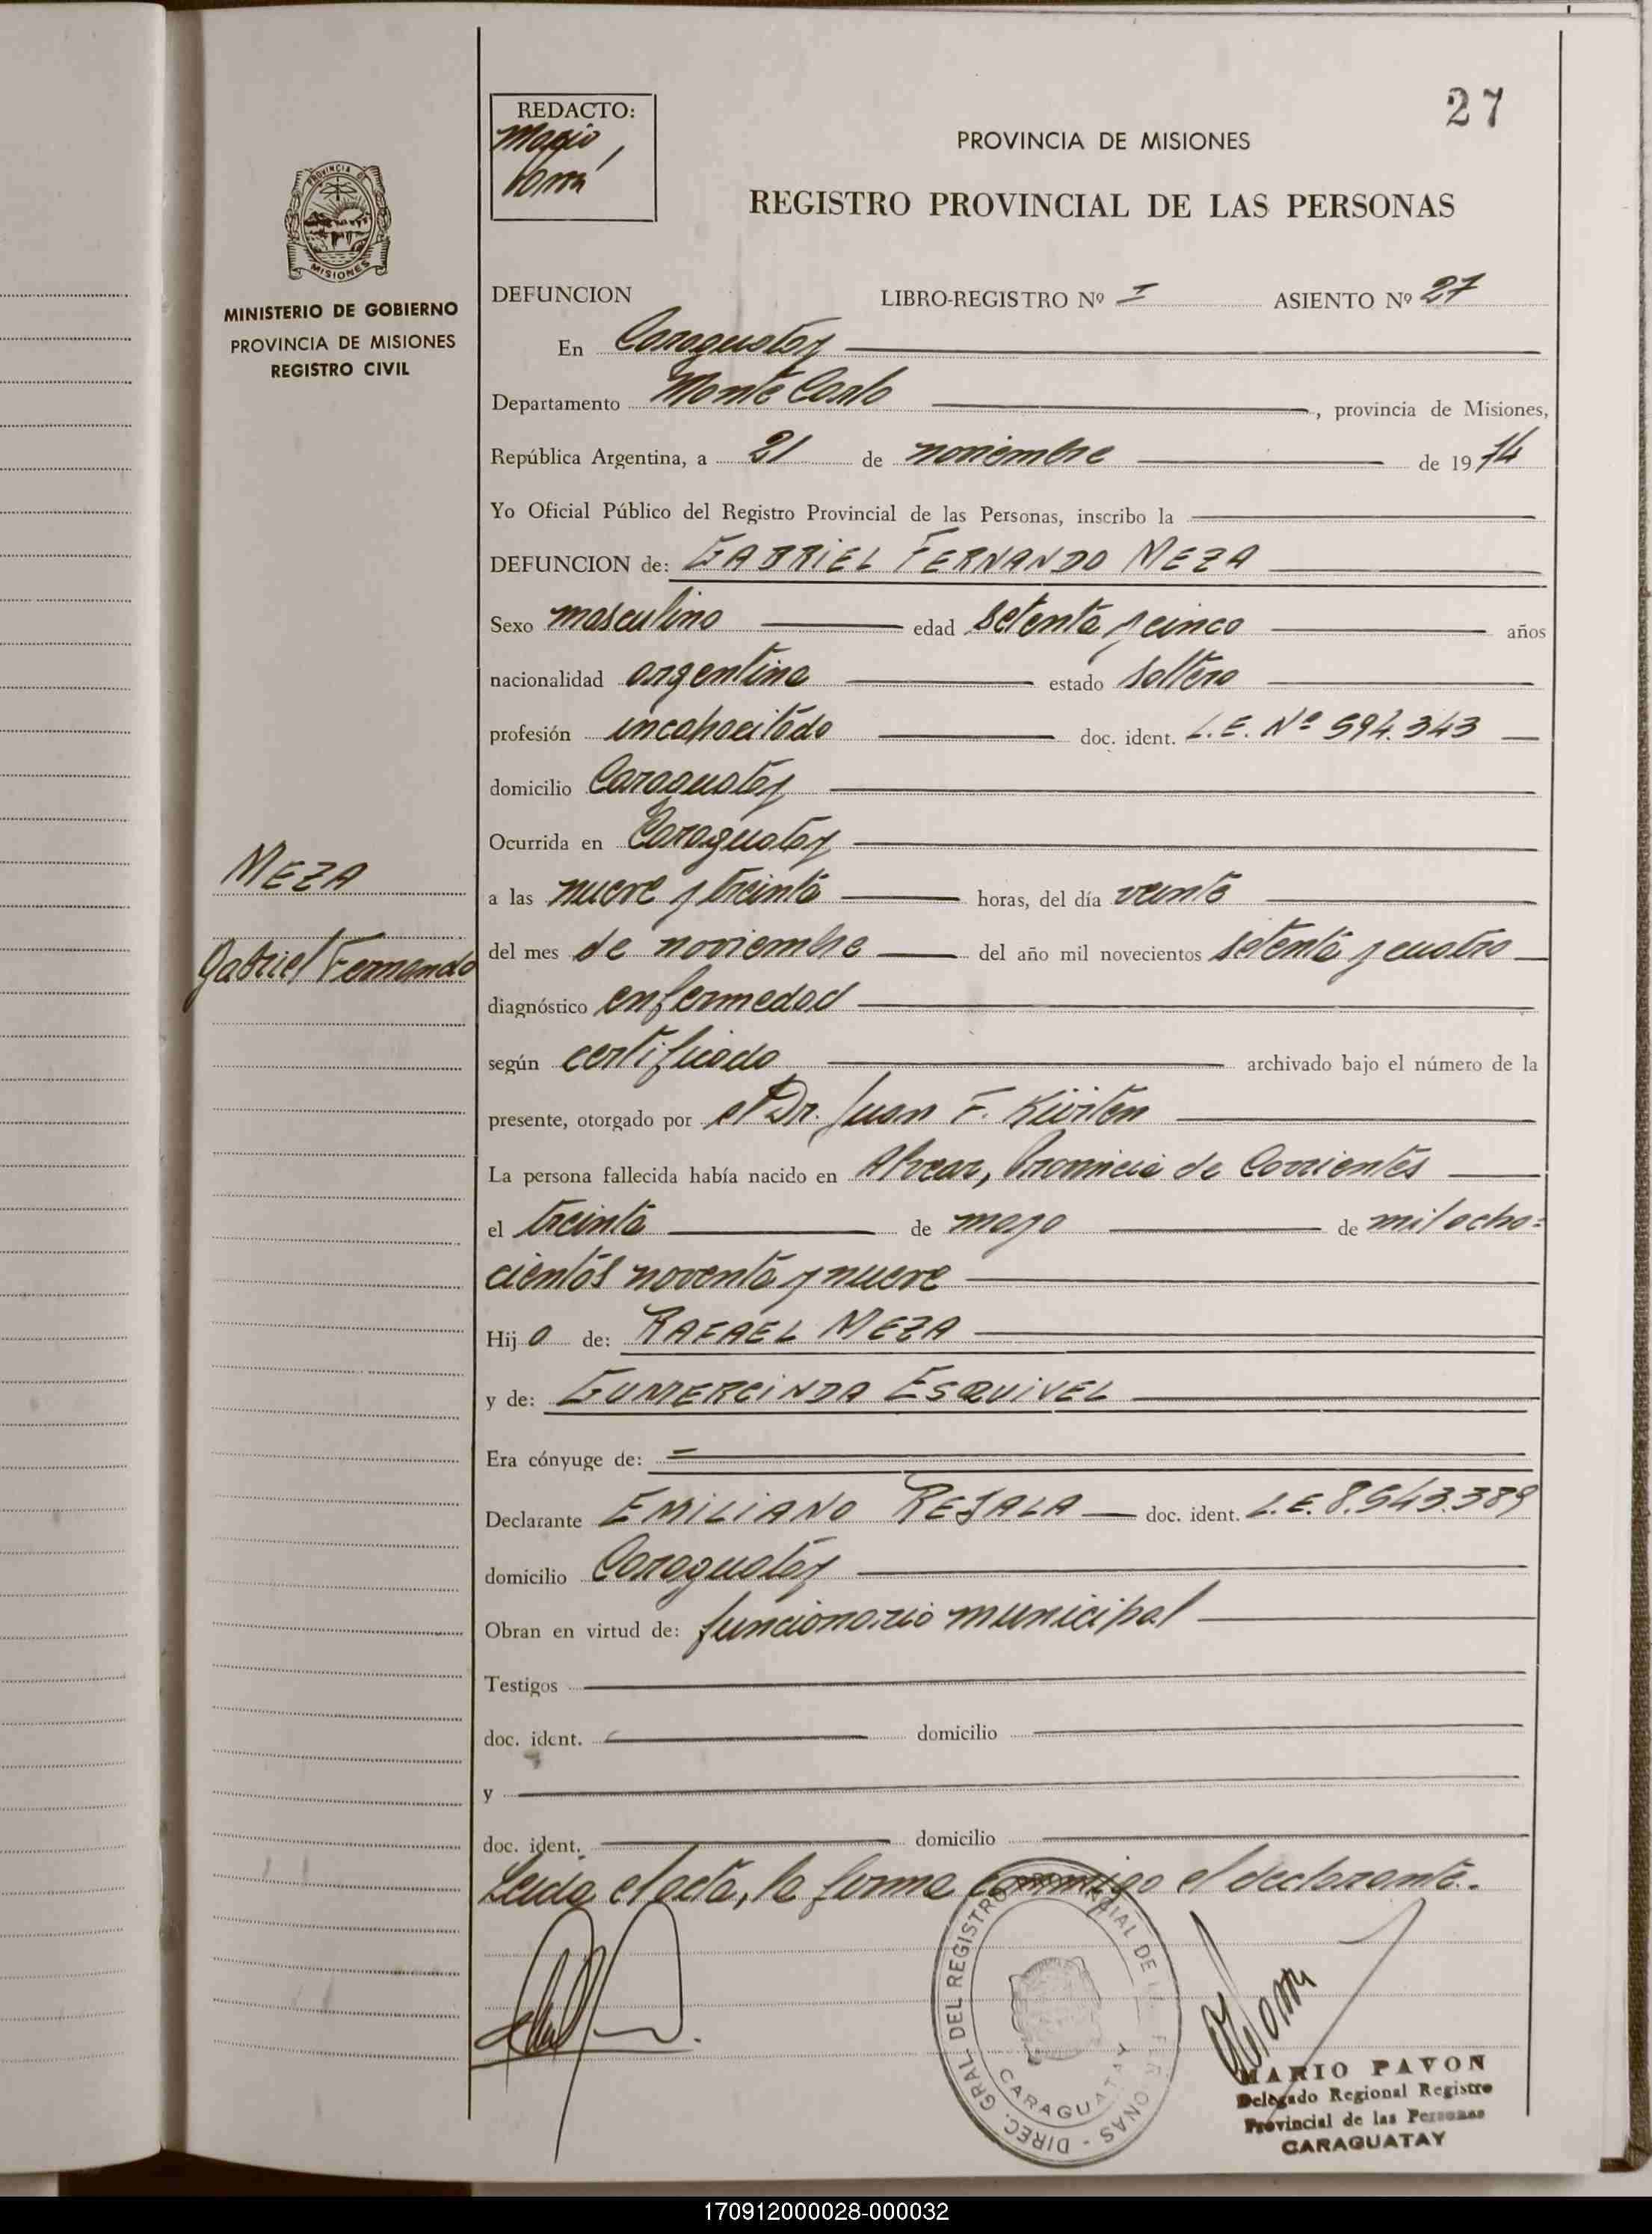 27
REDACTO:
Mario
PROVINCIA DE MISIONES
REGISTRO PROVINCIAL DE LAS PERSONAS
PROVINCIA DE
MISIONES
MINISTERIO DE GOBIERNO
PROVINCIA DE MISIONES
REGISTRO CIVIL
DEFUNCION LIBRO-REGISTRO Nº I ASIENTO Nº 27
En Caraguatay
Departamento Monte Carlo, provincia de Misiones,
República Argentina, a 21 de noviembre de 1974
Yo Oficial Público del Registro Provincial de las Personas, inscribo la
DEFUNCION de: GABRIEL FERNANDO MEZA
Sexo masculino edad setenta y cinco años
nacionalidad argentina estado soltero
profesión incapacitado doc. ident. L.E. Nº 594.343
domicilio Caraguatay
Ocurrida en Caraguatay
MEZA
a las nueve y treinta horas, del día veinte
Gabriel Fernando
del mes de noviembre del año mil novecientos setenta y cuatro
diagnóstico enfermedad
según certificado archivado bajo el número de la
presente, otorgado por el Dr. Juan F.
La persona fallecida había nacido en Alvear, Provincia de Corrientes
el treinta de mayo de mil ocho=
cientos noventa y nueve
Hijo de: RAFAEL MEZA
y de: GUMERCINDA ESQUIVEL
Era cónyuge de:
Declarante EMILIANO REJALA doc. ident. L.E. 8.543.389
domicilio Caraguatay
Obran en virtud de: funcionario municipal
Testigos
doc. ident. domicilio
y
doc. ident. domicilio
Leída el acta, la firma conmigo el declarante.
DIREC. GRAL. DEL REGISTRO PROVINCIAL DE LAS PERSONAS
CARAGUATAY
MARIO PAVON
Delegado Regional Registro
Provincial de las Personas
CARAGUATAY
170912000028-000032